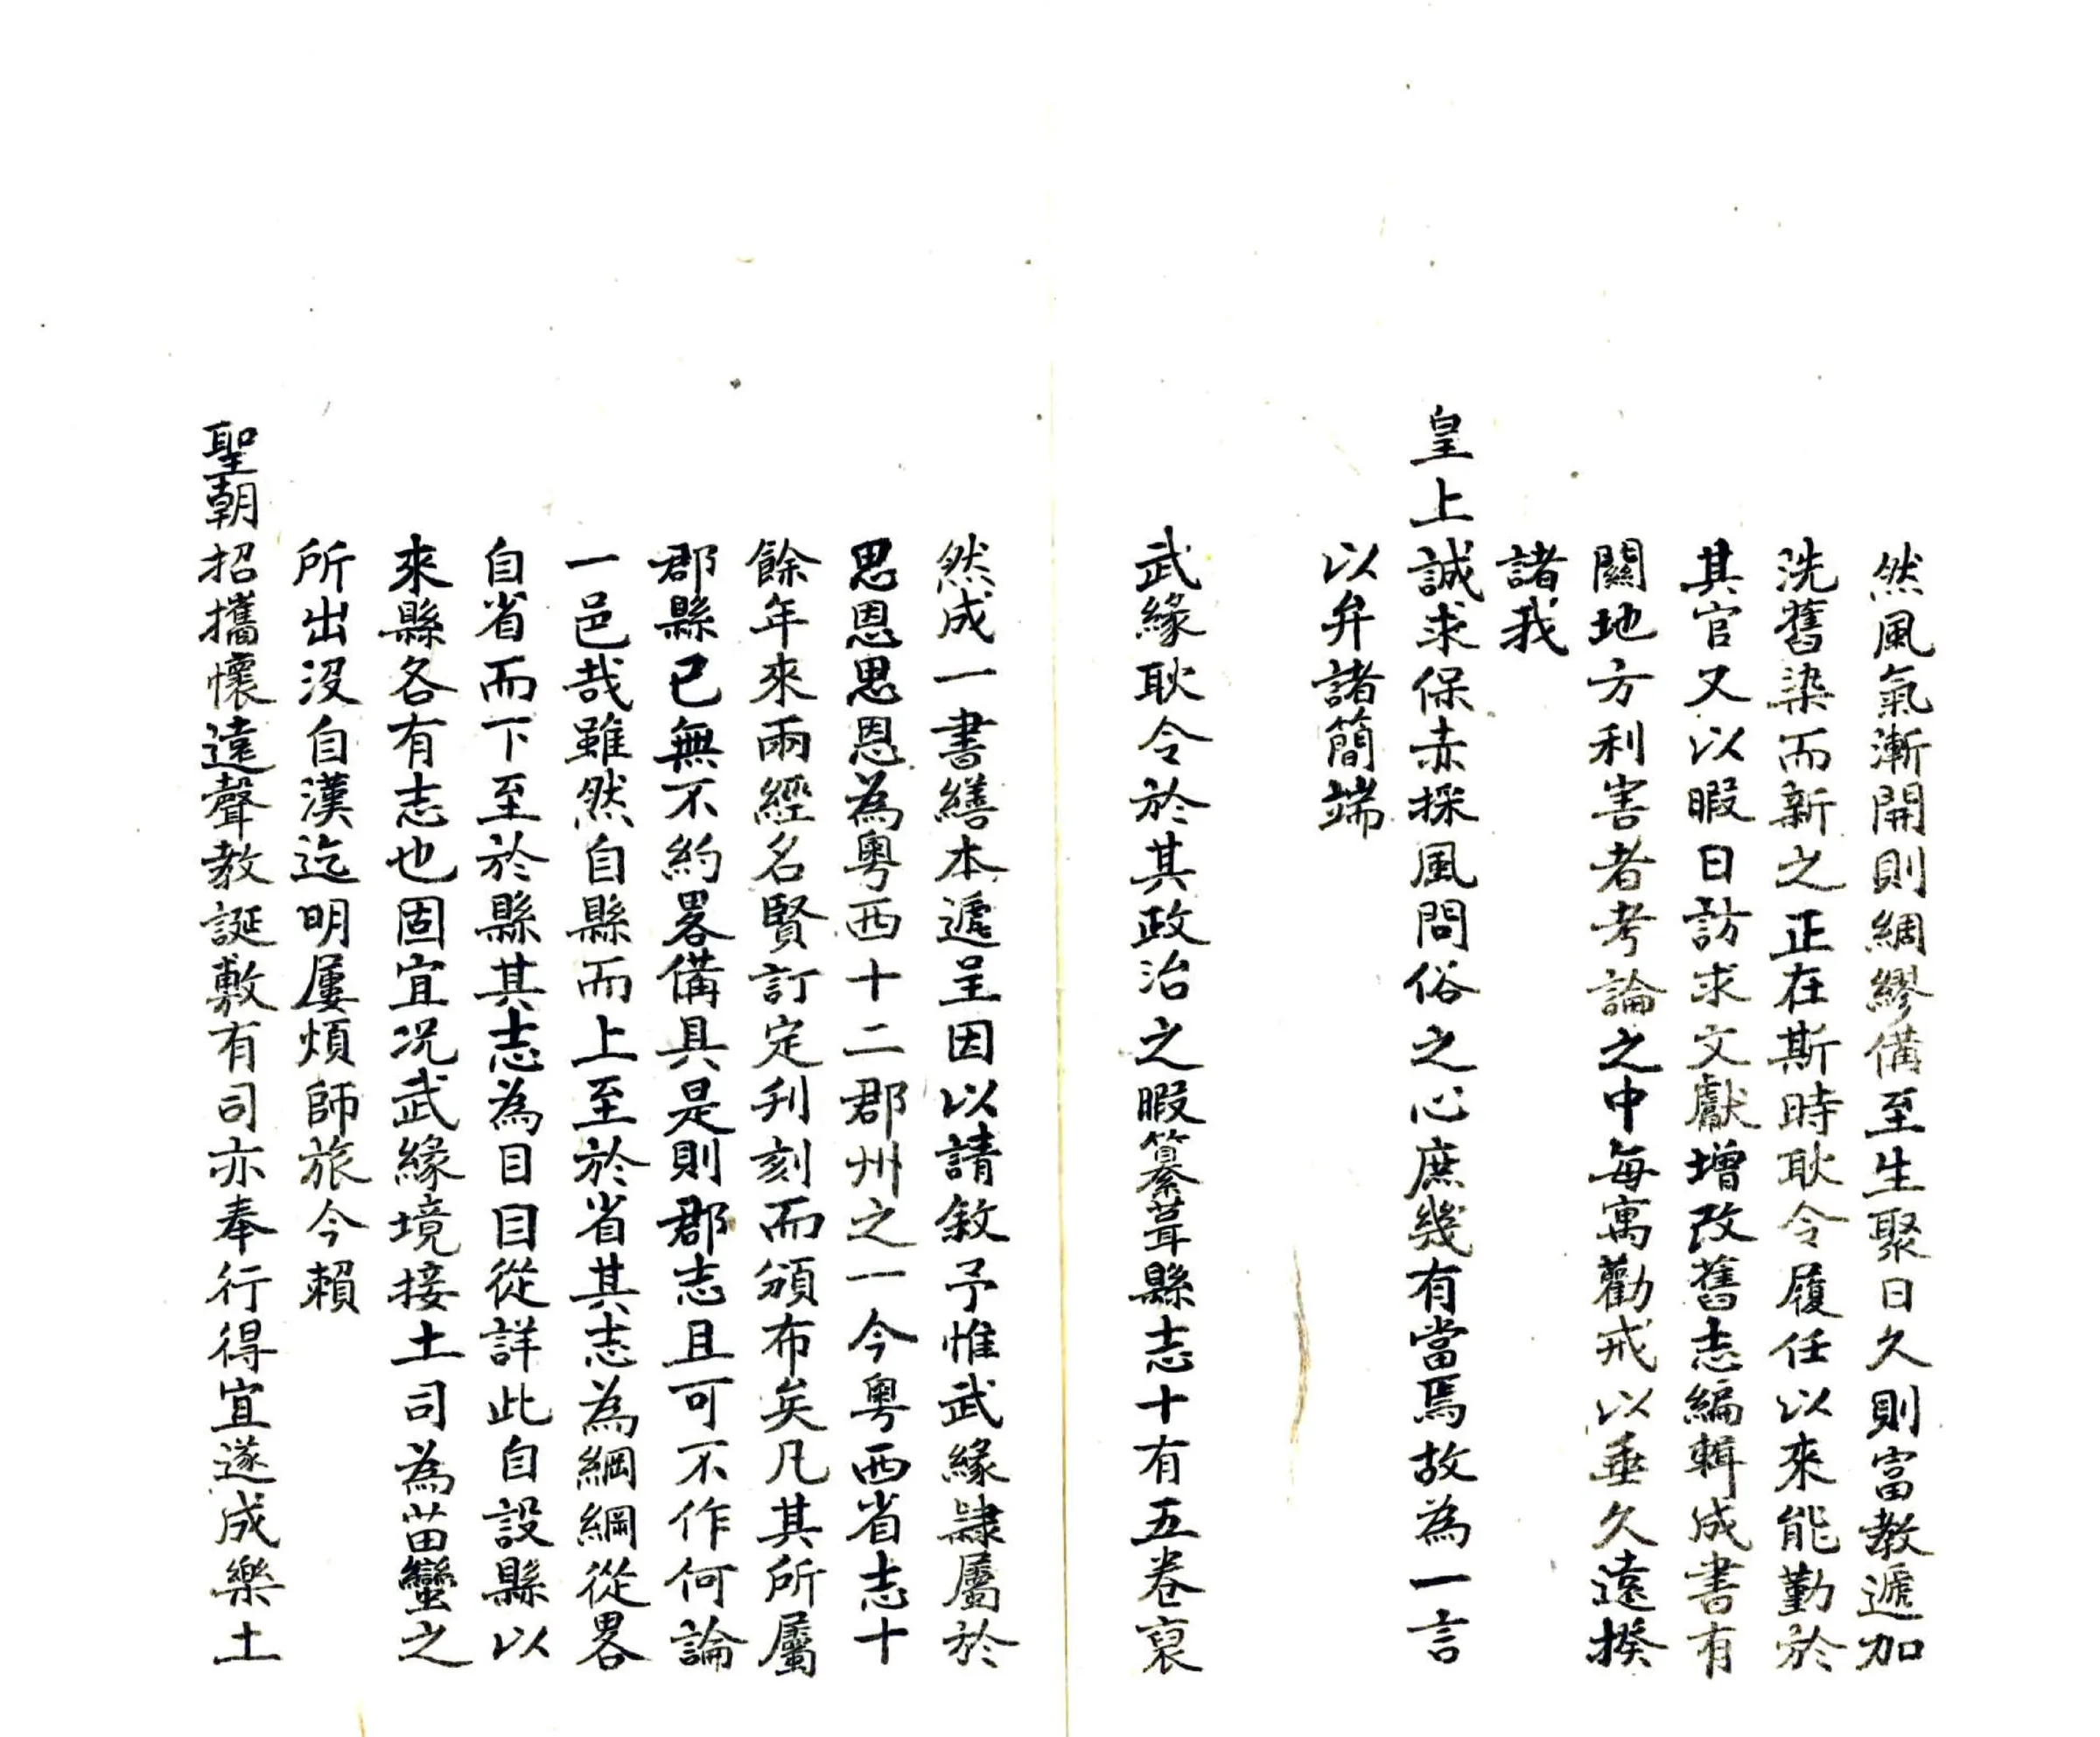 然風氣漸開則綢繆備至生聚日久則富教遞加
洗舊染而新之正在斯時耿令履任以來能勤於
其官又以暇日訪求文獻增改舊志編輯成書有
關地方利害者考論之中每寓勸戒以垂久遠揆
諸我
皇上誠求保赤採風問俗之心庶幾有當焉故為一言
以弁諸簡端
武緣耿令於其政治之暇纂葺縣志十有五卷裒
然成一書繕本遞呈因以請敘予惟武緣隸屬於
思恩思恩為粤西十二郡州之一今粤西省志十
餘年來兩經名賢訂定刋刻而頒布矣凡其所屬
郡縣已無不約畧備具是則郡志且可不作何論
一邑哉雖然自縣而上至於省其志為綱綱從畧
自省而下至於縣其志為目目從詳此自設縣以
來縣各有志也固宜况武緣境接土司為苗蠻之
所出沒自漢迄明屢煩師旅今賴
聖朝招攜懷遠聲教誕敷有司亦奉行得宜遂成樂土